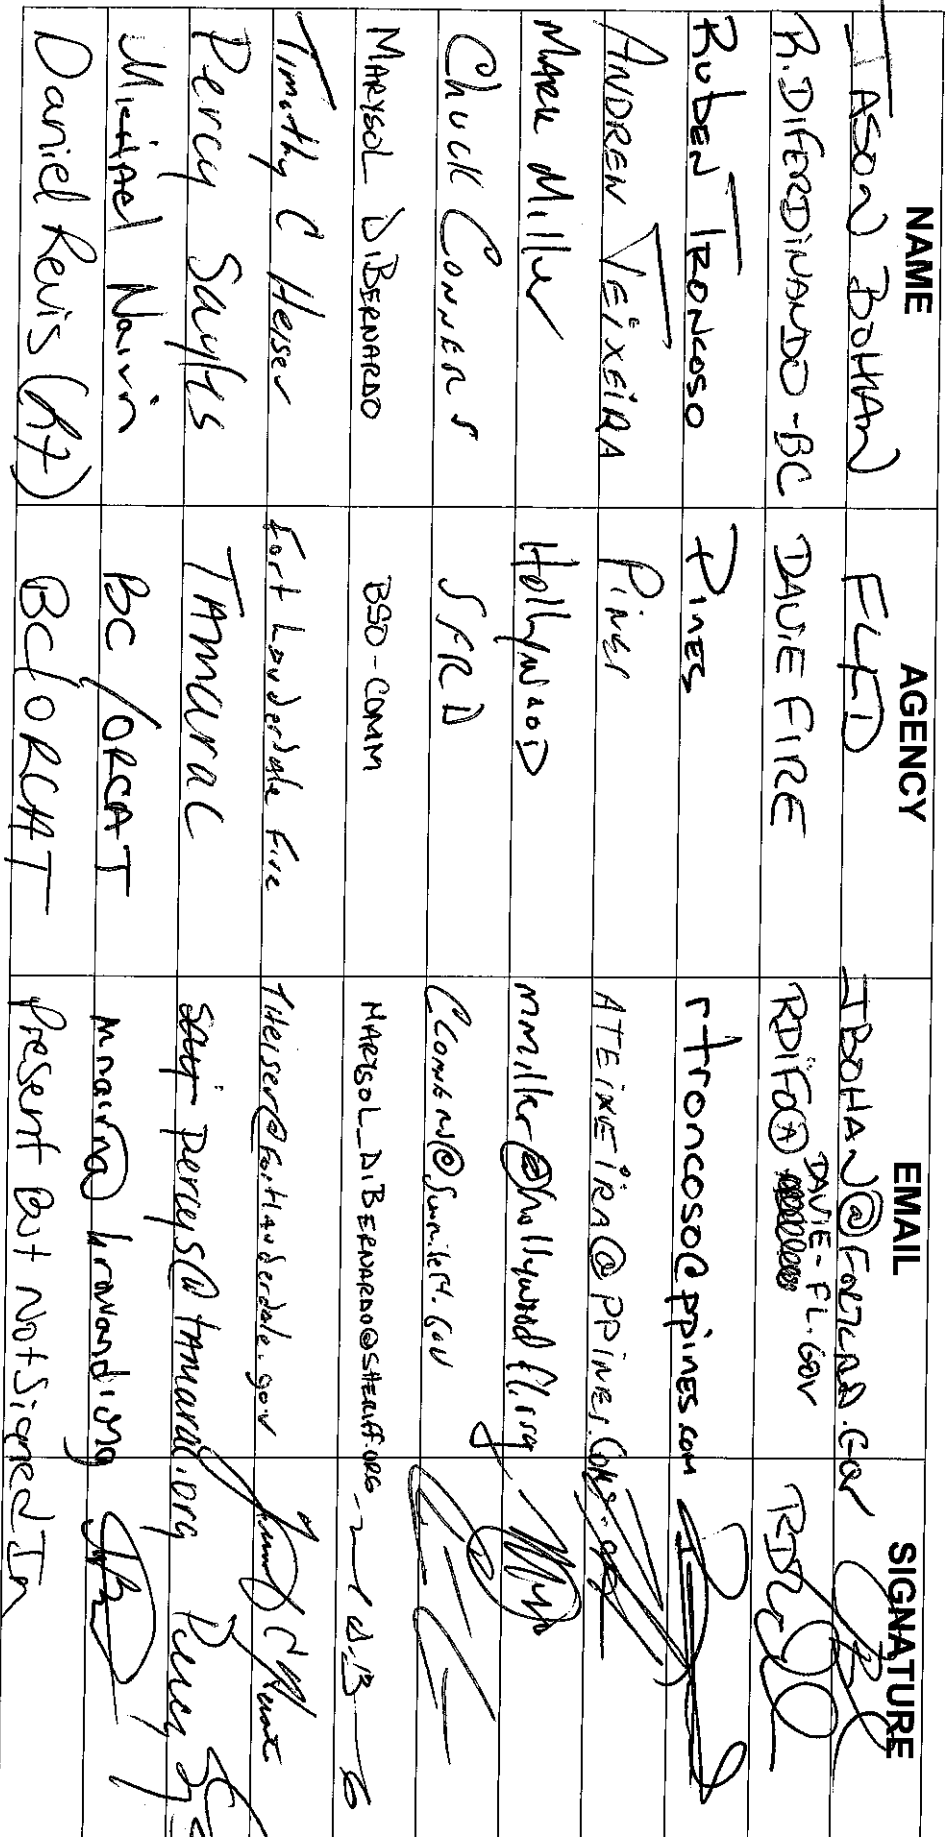 NAME AGENCY EMAIL SIGNATURE
JASON BOHAN FLFD JBOHAN@FORTLAUD.GOV
R. DIFERDINANDO-BC DAVIE FIRE RDIFO@ DAVIE-FL.GOV
RUBEN TRONCOSO PINES rtroncoso@ppines.com
ANDREN TEIXEIRA PINES ATEIXEIRA@PPINES.COM
MARK MILLER HOLLYWOOD mmiller@hollywoodfl.org
Chuck CONNERS SFRD
MARYSOL DIBERNARDO BSO-COMM MARYSOL_DIBERNARDO@SHERIFF.ORG
Timothy C Heiser Fort Lauderdale Fire THeiser@fortlauderdale.gov
Percy Sayles TAMARAC percys@tamarac.org
Michael Nairin BC/ORCAT
Daniel Revis (R7) BC/ORCAT Present But Not Signed In